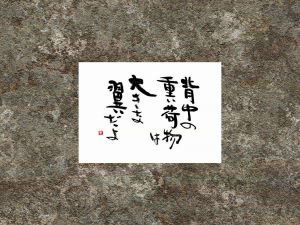 背中の
重い荷物は
大きな
翼だよ